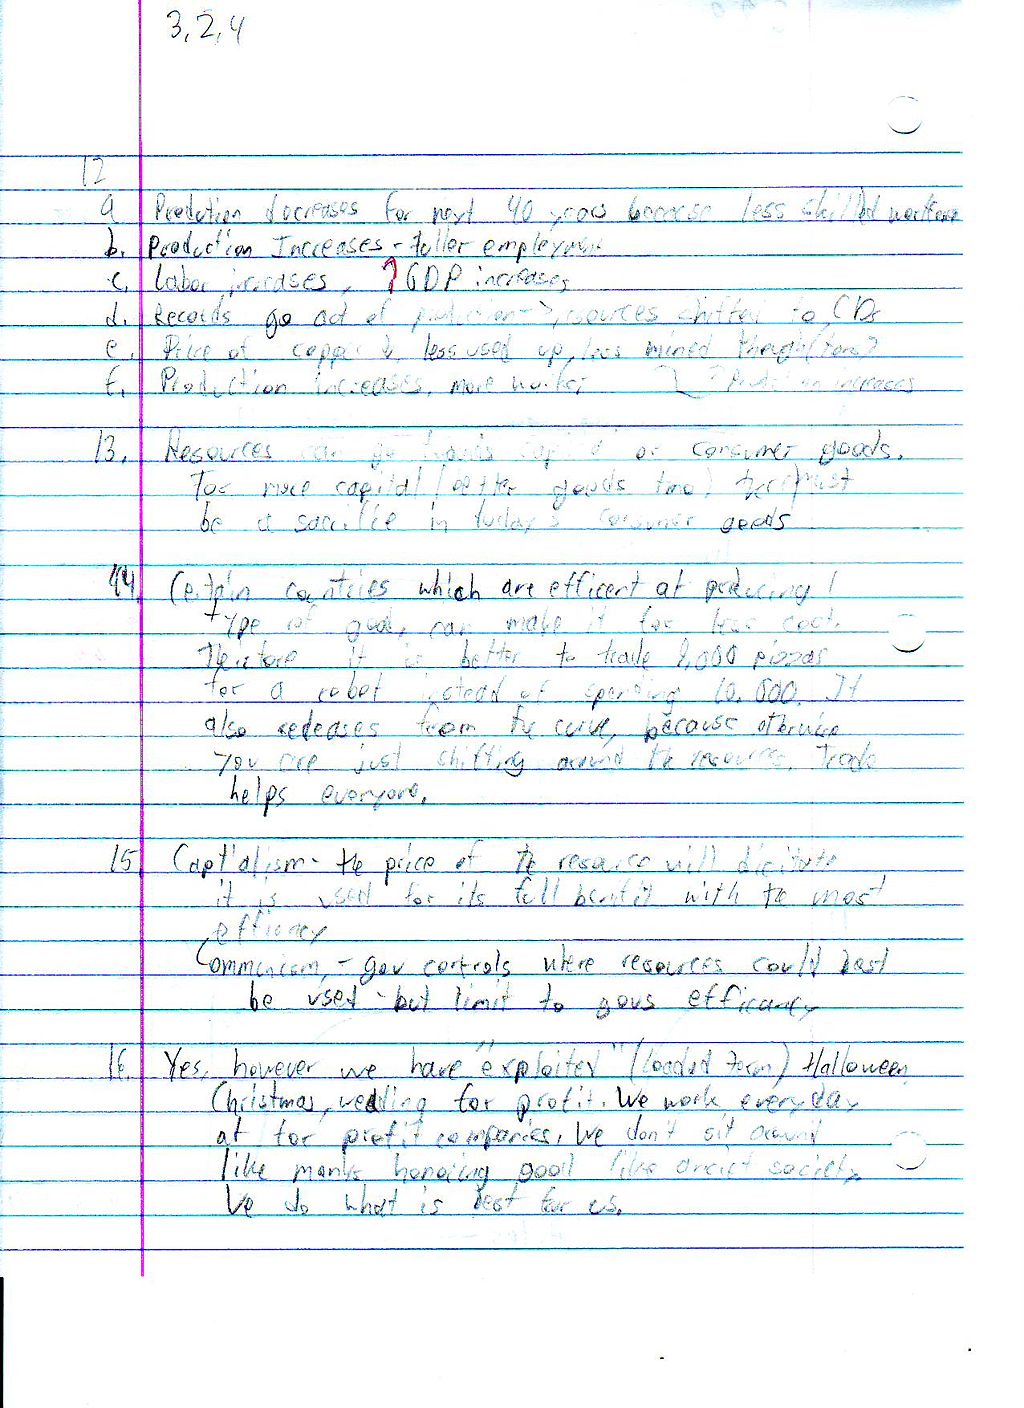 3, 2, 4
12
a Prodution decreases for next 40 years because less skilled workers
b. Production Increases - fuller employment
c. Labor increases, ↑ GDP increases
d. Records go out of production -> resources shifted to CDs
e. Price of copper less used up, less mined though
f. Production increases, more
13. Resources can go or consumer goods.
For more capital (better goods tmo) there must
be a sacrifice in today's consumer goods
14. Certain countries which are efficent at producing 1
type of good, can make it for less cost.
Therefore it is better to trade 8,000 pizzas
for a robot instead of spending 10,000. It
also from the curve, because otherwise
you are just shifting around the resources. Trade
helps everyone.
15. Captialism - the price of the resource will
it is used for its full benifit with the most
efficincy
Communism, - gov controls where resources could best
be used - but limit to govs efficancy
16. Yes, however we have "exploited" (loaded term) Halloween,
Christmas, wedding for profit. We work everyday
at for profit companies. We don't sit around
like monks honoring good like society.
We do what is best for us.